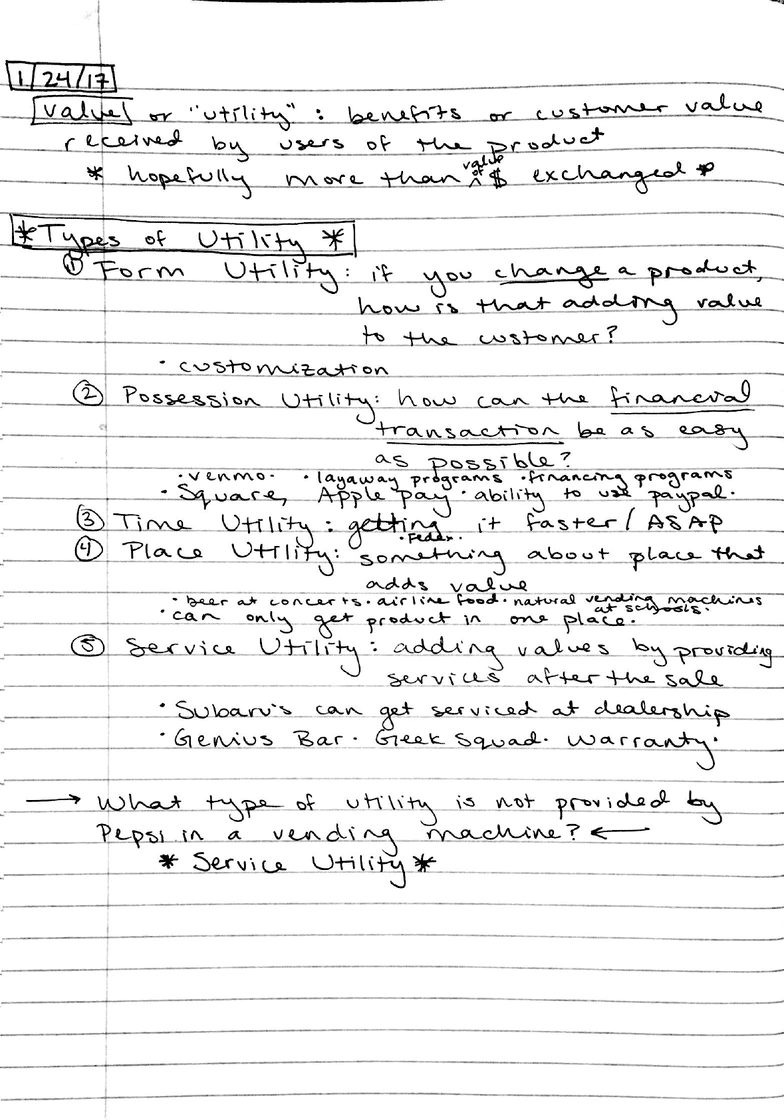 1/24/17
value or "utility" : benefits or customer value
received by users of the product
* hopefully more than value of $ exchanged *
*Types of Utility *
① Form Utility: if you change a product,
how is that adding value
to the customer?
· customization
② Possession Utility: how can the financial
transaction be as easy
as possible?
· venmo · · layaway programs · financing programs
· Square, Apple pay · ability to use paypal ·
③ Time Utility : getting it faster / ASAP
· Fedex ·
④ Place Utility: something about place that
adds value
· beer at concerts · airline food · natural vending machines at schools ·
· can only get product in one place ·
⑤ Service Utility : adding values by providing
services after the sale
· Subaru's can get serviced at dealership
· Genius Bar · Geek Squad · warranty ·
→ What type of utility is not provided by
Pepsi in a vending machine? ←
* Service Utility *